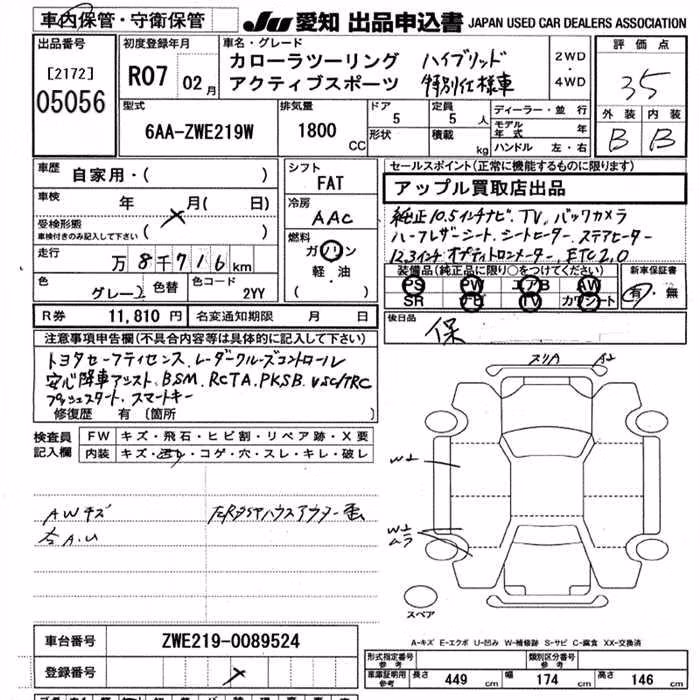 車内保管・守衛保管
JU 愛知 出品申込書 JAPAN USED CAR DEALERS ASSOCIATION
出品番号
[2172]
05056
初度登録年月
R07 02月
車名・グレード
カローラツーリング ハイブリッド
アクティブスポーツ 特別仕様車
2WD
・
4WD
評価点
3.5
外装 内装
B B
型式
6AA-ZWE219W
排気量
1800 CC
ドア
5
定員
5 人
形状
積載
kg
ディーラー・並行
モデル年式 年
ハンドル 左・右
車歴
自家用・( )
車検
年 月( 日)
受検形態
車検付きのみ記入して下さい
走行
万 8千716km
色
グレー2
色替
色コード
2YY
シフト
FAT
冷房
AAC
燃料
ガソリン
軽・油
( )
セールスポイント(正常に機能するものに限り)
アップル買取店出品
純正10.5インチナビ.TV.バックカメラ
ハーフレザーシート.シートヒーター.ステアヒーター
12.3インチオプティトロンメーター.ETC2.0
装備品(純正品に限り○をつけてください)
PS PW エアB AW
SR ナビ TV カワシート
新車保証書
有・無
R券 11,810 円
名変通知期限 月 日
後日品
保
注意事項申告欄(不具合内容等は具体的に記入して下さい)
トヨタセーフティセンス.レーダークルーズコントロール
安心降車アシスト.BSM.RCTA.PKSB.VSC/TRC
プッシュスタート.スマートキー
修復歴 有 〔箇所 〕
検査員
記入欄
FW キズ・飛石・ヒビ割・リペア跡・X要
内装 キズ・汚レ・コゲ・穴・スレ・キレ・破レ
AWキズ
右A.U
スリA A2
W2
W2
ムラ
スペア
A-キズ E-エクボ U-凹み W-補修跡 S-サビ C-腐食 XX-交換済
車台番号 ZWE219-0089524
登録番号
形式指定番号
参考
類別区分番号
参考
車庫証明用
参考
長さ 449 cm 幅 174 cm 高さ 146 cm